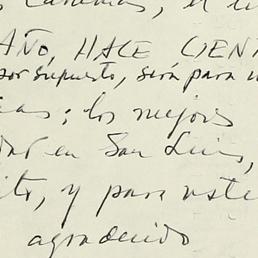 AÑO, HACE CIENT
por supuesto, será para u
as; los mejores
dad en San Luis,
ito, y para uste
agradecido